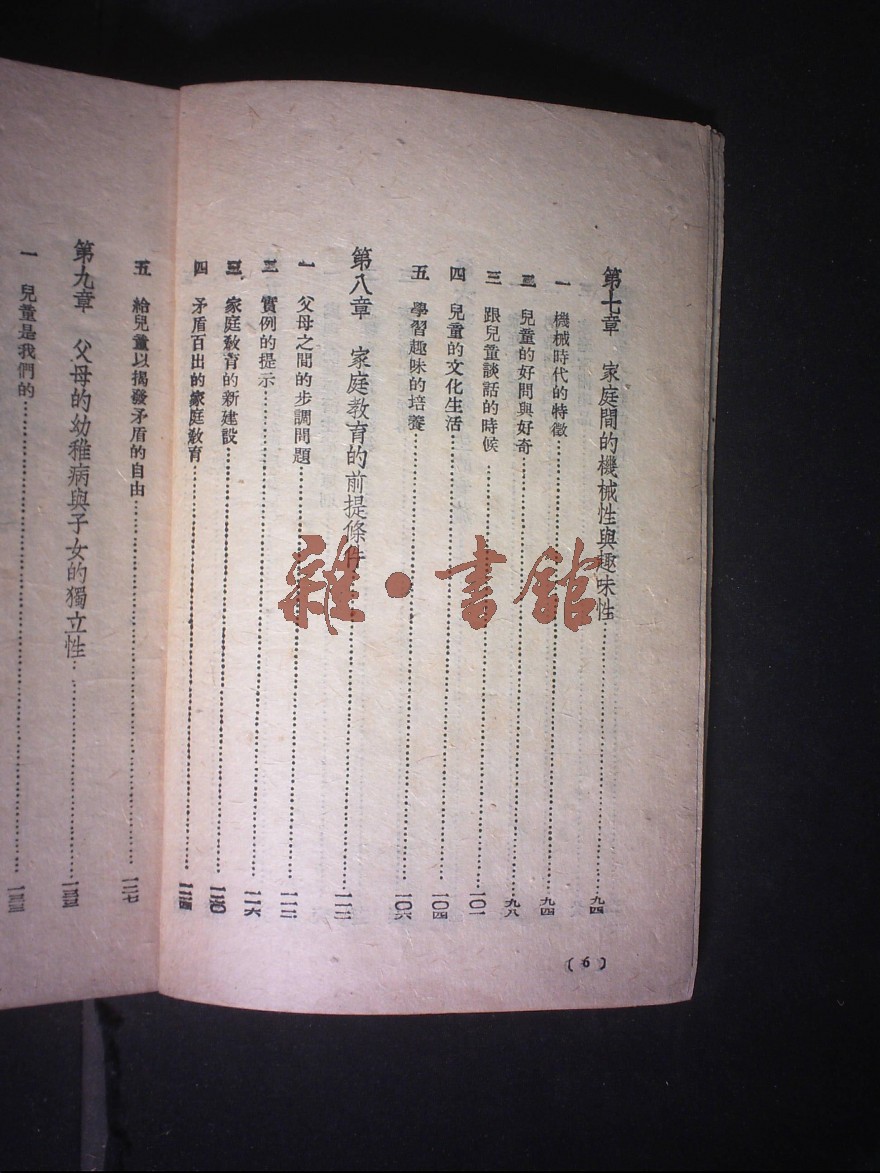 第七章　家庭間的機械性與趣味性……九四
一　機械時代的特徵……九四
二　兒童的好問與好奇……九八
三　跟兒童談話的時候……一〇一
四　兒童的文化生活……一〇四
五　學習趣味的培養……一〇六
第八章　家庭教育的前提條件……一一二
一　父母之間的步調問題……一一二
二　實例的提示……一一六
三　家庭教育的新建設……一二〇
四　矛盾百出的家庭教育……一二四
(6)
五　給兒童以揭發矛盾的自由……一二七
第九章　父母的幼稚病與子女的獨立性……一三三
一　兒童是我們的……一三三
雜·書館